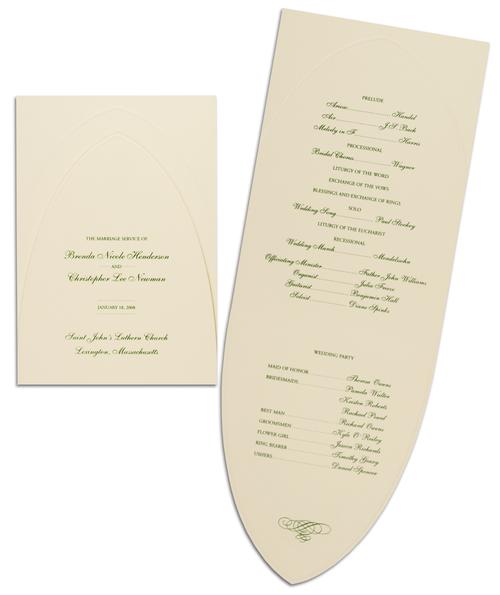 THE MARRIAGE SERVICE OF
Brenda Nicole Henderson
AND
Christopher Lee Newman
JANUARY 18, 2008
Saint John's Luthern Church
Lexington, Massachusetts
PRELUDE
Arioso Handel
Air J.S. Bach
Melody in F Harris
PROCESSIONAL
Bridal Chorus Wagner
LITURGY OF THE WORD
EXCHANGE OF THE VOWS
BLESSINGS AND EXCHANGE OF RINGS
SOLO
Wedding Song Paul Stookey
LITURGY OF THE EUCHARIST
RECESSIONAL
Wedding March Mendelssohn
Officiating Minister Father John Williams
Organist Julia Freeze
Guitarist Benjamin Hall
Soloist Diane Spinks
WEDDING PARTY
MAID OF HONOR Theresa Owens
BRIDESMAIDS Pamela Walter
Kristen Roberts
Rachael Pound
BEST MAN Richard Owens
GROOMSMEN Kyle O'Bailey
FLOWER GIRL Jason Richards
RING BEARER Timothy Geary
USHERS Daniel Spencer